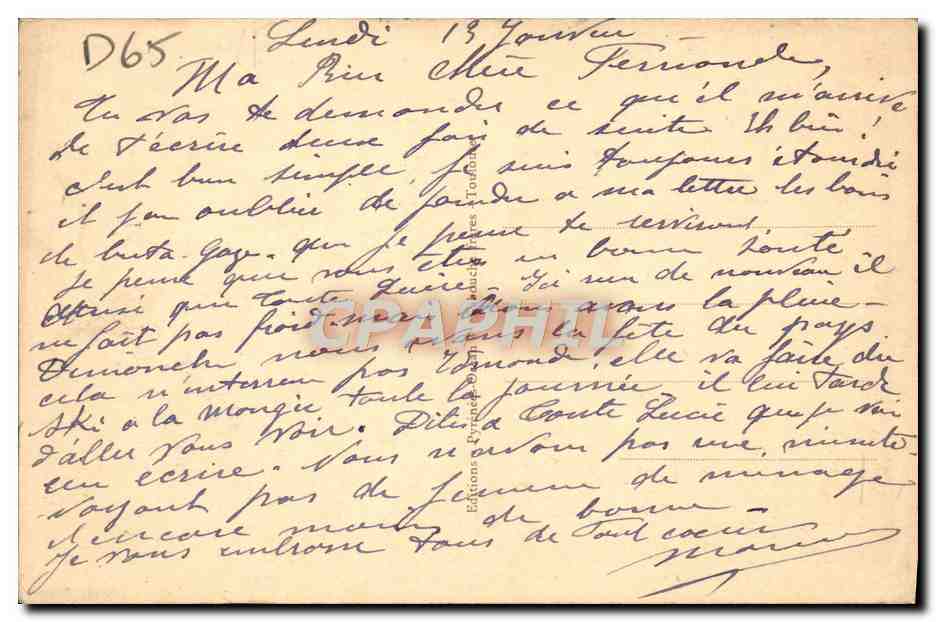 D65
Lundi 13 Janvier
Ma Bien Chère Fernande,
Tu vas te demander ce qu'il m'arrive
de t'écrire deux fois de suite Eh bien!
c'est bien simple je suis toujours étourdie
il j'ai oublier de joindre a ma lettre les bons
de buta-gaze. que je pense te serviront
je pense que vous êtes en bonne santé
que toute Ici rien de nouveau il
ne fait pas froid. mais nous avons la pluie-
Dimanche nous avons la fête du pays
cela n'interesse pas Edmonde, elle va faire du
ski a la Mongie toute la journée, il lui tarde
d'aller vous voir. Dites a Tante Lucie que je vais
leur écrire. Nous n'avons pas une minute-
n'ayant pas de femme de menage
et encore moins de bonne
je vous embrasse tous de tout coeur
CPAPHIL
Editions Pyrénées-Océan Labouche Frères Toulouse